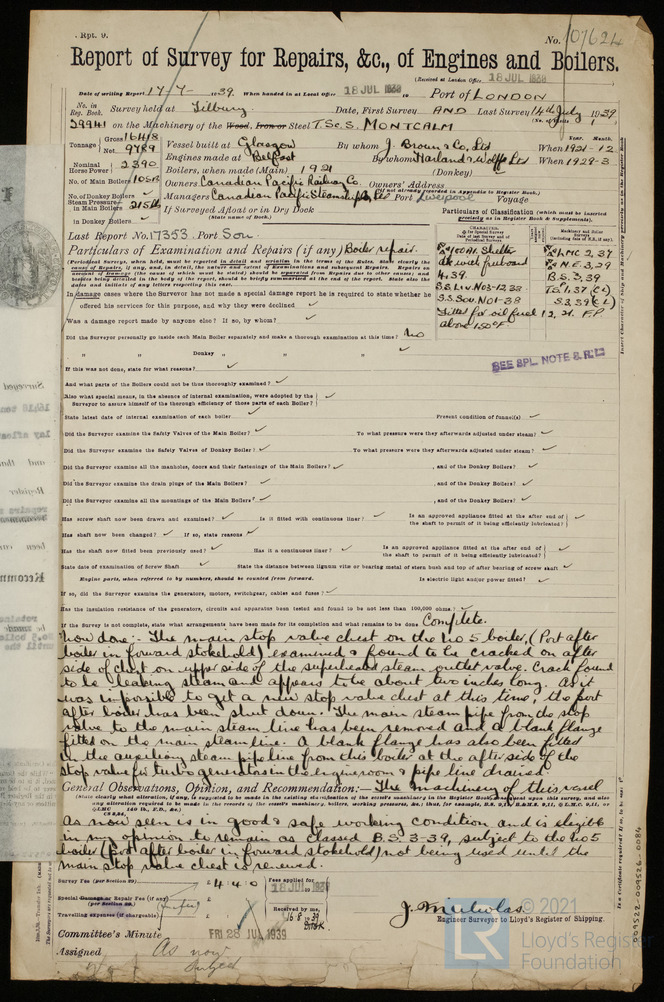 Rpt. 9.
No. 107624
Report of Survey for Repairs, &c., of Engines and Boilers.
(Received at London Office 18 JUL 1939
Date of writing Report 17/7 1939. When handed in at Local Office 18 JUL 1939 Port of LONDON
No. in Reg. Book. Survey held at Tilbury Date, First Survey AND Last Survey 14th July 1939
29941 on the Machinery of the Wood, Iron or Steel T.Sc.S. MONTCALM (No. of Visits 1
Tonnage Gross 16418 Net 9789 Vessel built at Glasgow By whom J. Brown & Co. Ltd When 1921-12
Nominal Horse Power 2390 Engines made at Belfast By whom Harland & Wolff Ltd When 1929-3
Boilers, when made (Main) 1921 (Donkey)
No. of Main Boilers Owners Canadian Pacific Railway Co. Owners' Address
(If not already recorded in Appendix to Register Book.)
No. of Donkey Boilers Managers Canadian Pacific Steamships Ltd Port Liverpool Voyage
Steam Pressure in Main Boilers 215 lb If Surveyed Afloat or in Dry Dock
(State name of Dock.)
in Donkey Boilers
Particulars of Classification (which must be inserted precisely as in the Register Book & Supplements).
Last Report No. 17353 Port Sou.
Particulars of Examination and Repairs (if any) Boiler repair.
Shelter dk with freeboard
4.39.
S.S. Liv. No3-12.33
S.S. Sou. No1-38
Fitted for oil fuel 12.21. F.P. above 150°F
LMC 2,37
N.E. 3,29
B.S. 3,39
TS 1,37 (CL)
S 3,39 (CL)
In damage cases where the Surveyor has not made a special damage report he is required to state whether he
offered his services for this purpose, and why they were declined
Was a damage report made by anyone else? If so, by whom?
Did the Surveyor personally go inside each Main Boiler separately and make a thorough examination at this time? No
" " Donkey " " " "
SEE SPL. NOTE S. R'T
If this was not done, state for what reasons?
And what parts of the Boilers could not be thoroughly examined?
Also what special means, in the absence of internal examination, were adopted by the
Surveyor to assure himself of the thorough efficiency of those parts of each Boiler?
State latest date of internal examination of each boiler Present condition of funnel(s)
Did the Surveyor examine the Safety Valves of the Main Boiler? To what pressure were they afterwards adjusted under steam?
Did the Surveyor examine the Safety Valves of Donkey Boiler? To what pressure were they afterwards adjusted under steam?
Did the Surveyor examine all the manholes, doors and their fastenings of the Main Boilers? , and of the Donkey Boilers?
Did the Surveyor examine the drain pings of the Main Boilers? , and of the Donkey Boilers?
Did the Surveyor examine all the mountings of the Main Boilers? , and of the Donkey Boilers?
Has screw shaft now been drawn and examined? Is it fitted with continuous liner? Is an approved appliance fitted at the after end of
the shaft to permit of it being efficiently lubricated?
Has shaft now been changed? If so, state reasons
Has the shaft now fitted been previously used? Has it a continuous liner? Is an approved appliance fitted at the after end of
the shaft to permit of it being efficiently lubricated?
State date of examination of Screw Shaft State the distance between lignum vitæ or bearing metal of stern bush and top of after bearing of screw shaft
Engine parts, when referred to by numbers, should be counted from forward. Is electric light and/or power fitted?
If so, did the Surveyor examine the generators, motors, switchgear, cables and fuses?
Has the insulation resistance of the generators, circuits and apparatus been tested and found to be not less than 100,000 ohms?
If the Survey is not complete, state what arrangements have been made for its completion and what remains to be done Complete.
Now done:- The main stop valve chest on the No 5 boiler, (Port after
boiler in forward stokehold) examined & found to be cracked on after
side of chest on upper side of the superheated steam outlet valve. Crack found
to be leaking steam and appears to be about two inches long. As it
was impossible to get a new stop valve chest at this time, the port
after boiler has been shut down. The main steam pipe from the stop
valve to the main steam line has been removed and a blank flange
fitted on the main steam line. A blank flange has also been fitted
in the auxiliary steam pipe line from this boiler at the after side of the
stop valve for turbo generators in the engine room & pipe line drained.
General Observations, Opinion, and Recommendation:— The machinery of this vessel
as now seen is in good & safe working condition and is eligible
in my opinion to remain as classed B.S. 3-39, subject to the No 5
boiler (Port after boiler in forward stokehold) not being used until the
main stop valve chest is renewed.
Survey Fee (per Section 29) £ 4 : 4 : 0 Fees applied for 18 JUL 1939
Special Damage or Repair Fee (if any) (per Section 29) £
Travelling expenses (if chargeable) £ Received by me, 16.8.1939
J. Nicholas
Engineer Surveyor to Lloyd's Register of Shipping.
Committee's Minute FRI 28 JUL 1939
Assigned As now
Subject
© 2021
LR
Lloyd's Register
Foundation
009522-009526-0084